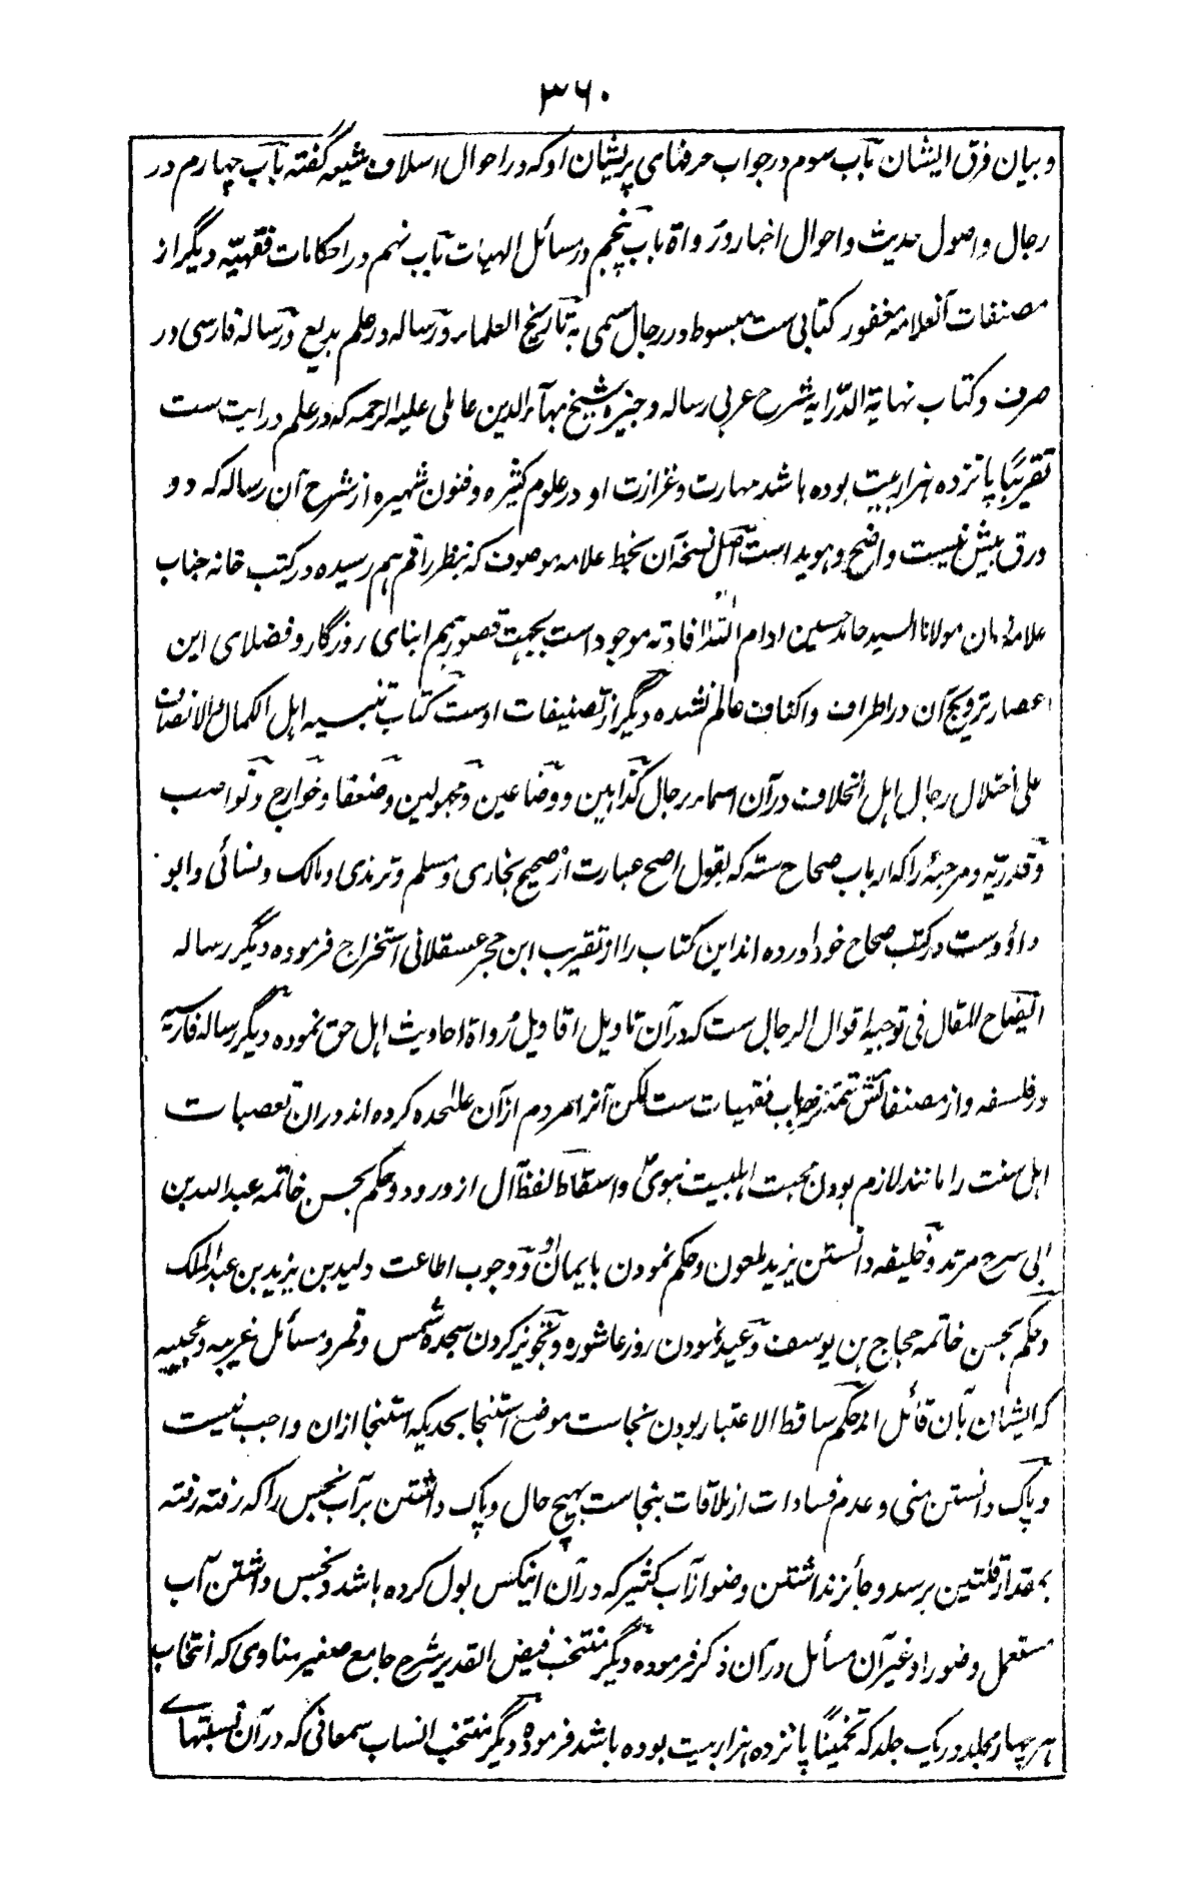 ۳۶۰
و بیان فرق ایشان باب سوم در جواب حرفهای پریشان او که در احوال اسلاف شیعه گفته باب چهارم در
رجال و اصول حدیث و احوال اخبار و رواة باب پنجم در مسائل الهیات باب نهم در احکامات فقهیّه دیگر از
مصنفات آنعلامه مغفور کتابی ست مبسوط در رجال مسمی به تاریخ العلماء و رساله در علم بدیع و رساله فارسی در
صرف و کتاب نهایة الدّرایه شرح عربی رساله وجیزه شیخ بهاء الدین عاملی علیه الرحمه که در علم درایت ست
تقریبًا پانزده هزار بیت بوده باشد مهارت و غزارت او در علوم کثیره و فنون شهیره از شرح آن رساله که دو
ورق بیش نیست واضح و هویدا است اصل نسخه آن بخط علامه موصوف که بنظر راقم هم رسیده در کتب خانه جناب
علامه زمان مولانا السید حامد حسین ادام الله افادته موجود است بجهت قصور همم ابنای روزگار و فضلای این
اعصار ترویج آن در اطراف و اکناف عالم نشده دیگر از تصنیفات اوست کتاب تنبیه اهل الکمال و الانصاف
علی اختلال رجال اهل الخلاف در آن اسماء رجال کذابین و وضاعین و مجهولین و ضعفا و خوارج و نواصب
و قدریّه و مرجئه را که ارباب صحاح سته که بقول اصح عبارت از صحیح بخاری و مسلم و ترمذی و مالک و نسائی و ابو
داؤد ست در کتب صحاح خود آورده اند این کتاب را از تقریب ابن حجر عسقلانی استخراج فرموده دیگر رساله
ایضاح المقال فی توجیه اقوال الرجال ست که در آن تاویل اقاویل رُواة احادیث اهل حق نموده دیگر رساله فارسیه
در فلسفه و از مصنفاتش تتمه باب فقهیات ست لکن آنرا مردم از آن علٰحده کرده اند و ران تعصبات
اهل سنت را مانند لازم بودن محبت اهلبیت نبویؑ و اسقاط لفظ آل از ورود و حکم بحسن خاتمه عبد الله بن
ابی سرح مرتد و خلیفه دانستن یزید ملعون و حکم نمودن بایمان او و وجوب اطاعت ولید بن یزید بن عبد الملک
و حکم بحسن خاتمه حجاج بن یوسف و عید نمودن روز عاشوره و تجویز کردن سجده شمس و قمر و مسائل غریبه و عجیبه
که ایشان بآن قائل اند حکم ساقط الاعتبار بودن نجاست موضع استنجا بحدیکه استنجا ازان واجب نیست
و پاک دانستن منی و عدم فساد ات از ملاقات نجاست بهیچ حال و پاک داشتن بر آب نجس را که رفته رفته
بمقدار قلتین برسد و جائز نداشتن وضو از آب کثیر که در آن اینکس بول کرده باشد و نجس داشتن آب
مستعمل وضو را و غیر آن مسائل در آن ذکر فرموده دیگر منتخب فیض القدیر شرح جامع صغیر مناوی که انتخاب
هر چهار مجلد در یک جلد که تخمینًا پانزده هزار بیت بوده باشد فرموده دیگر منتخب انساب سمعانی که در آن نسبتهاے